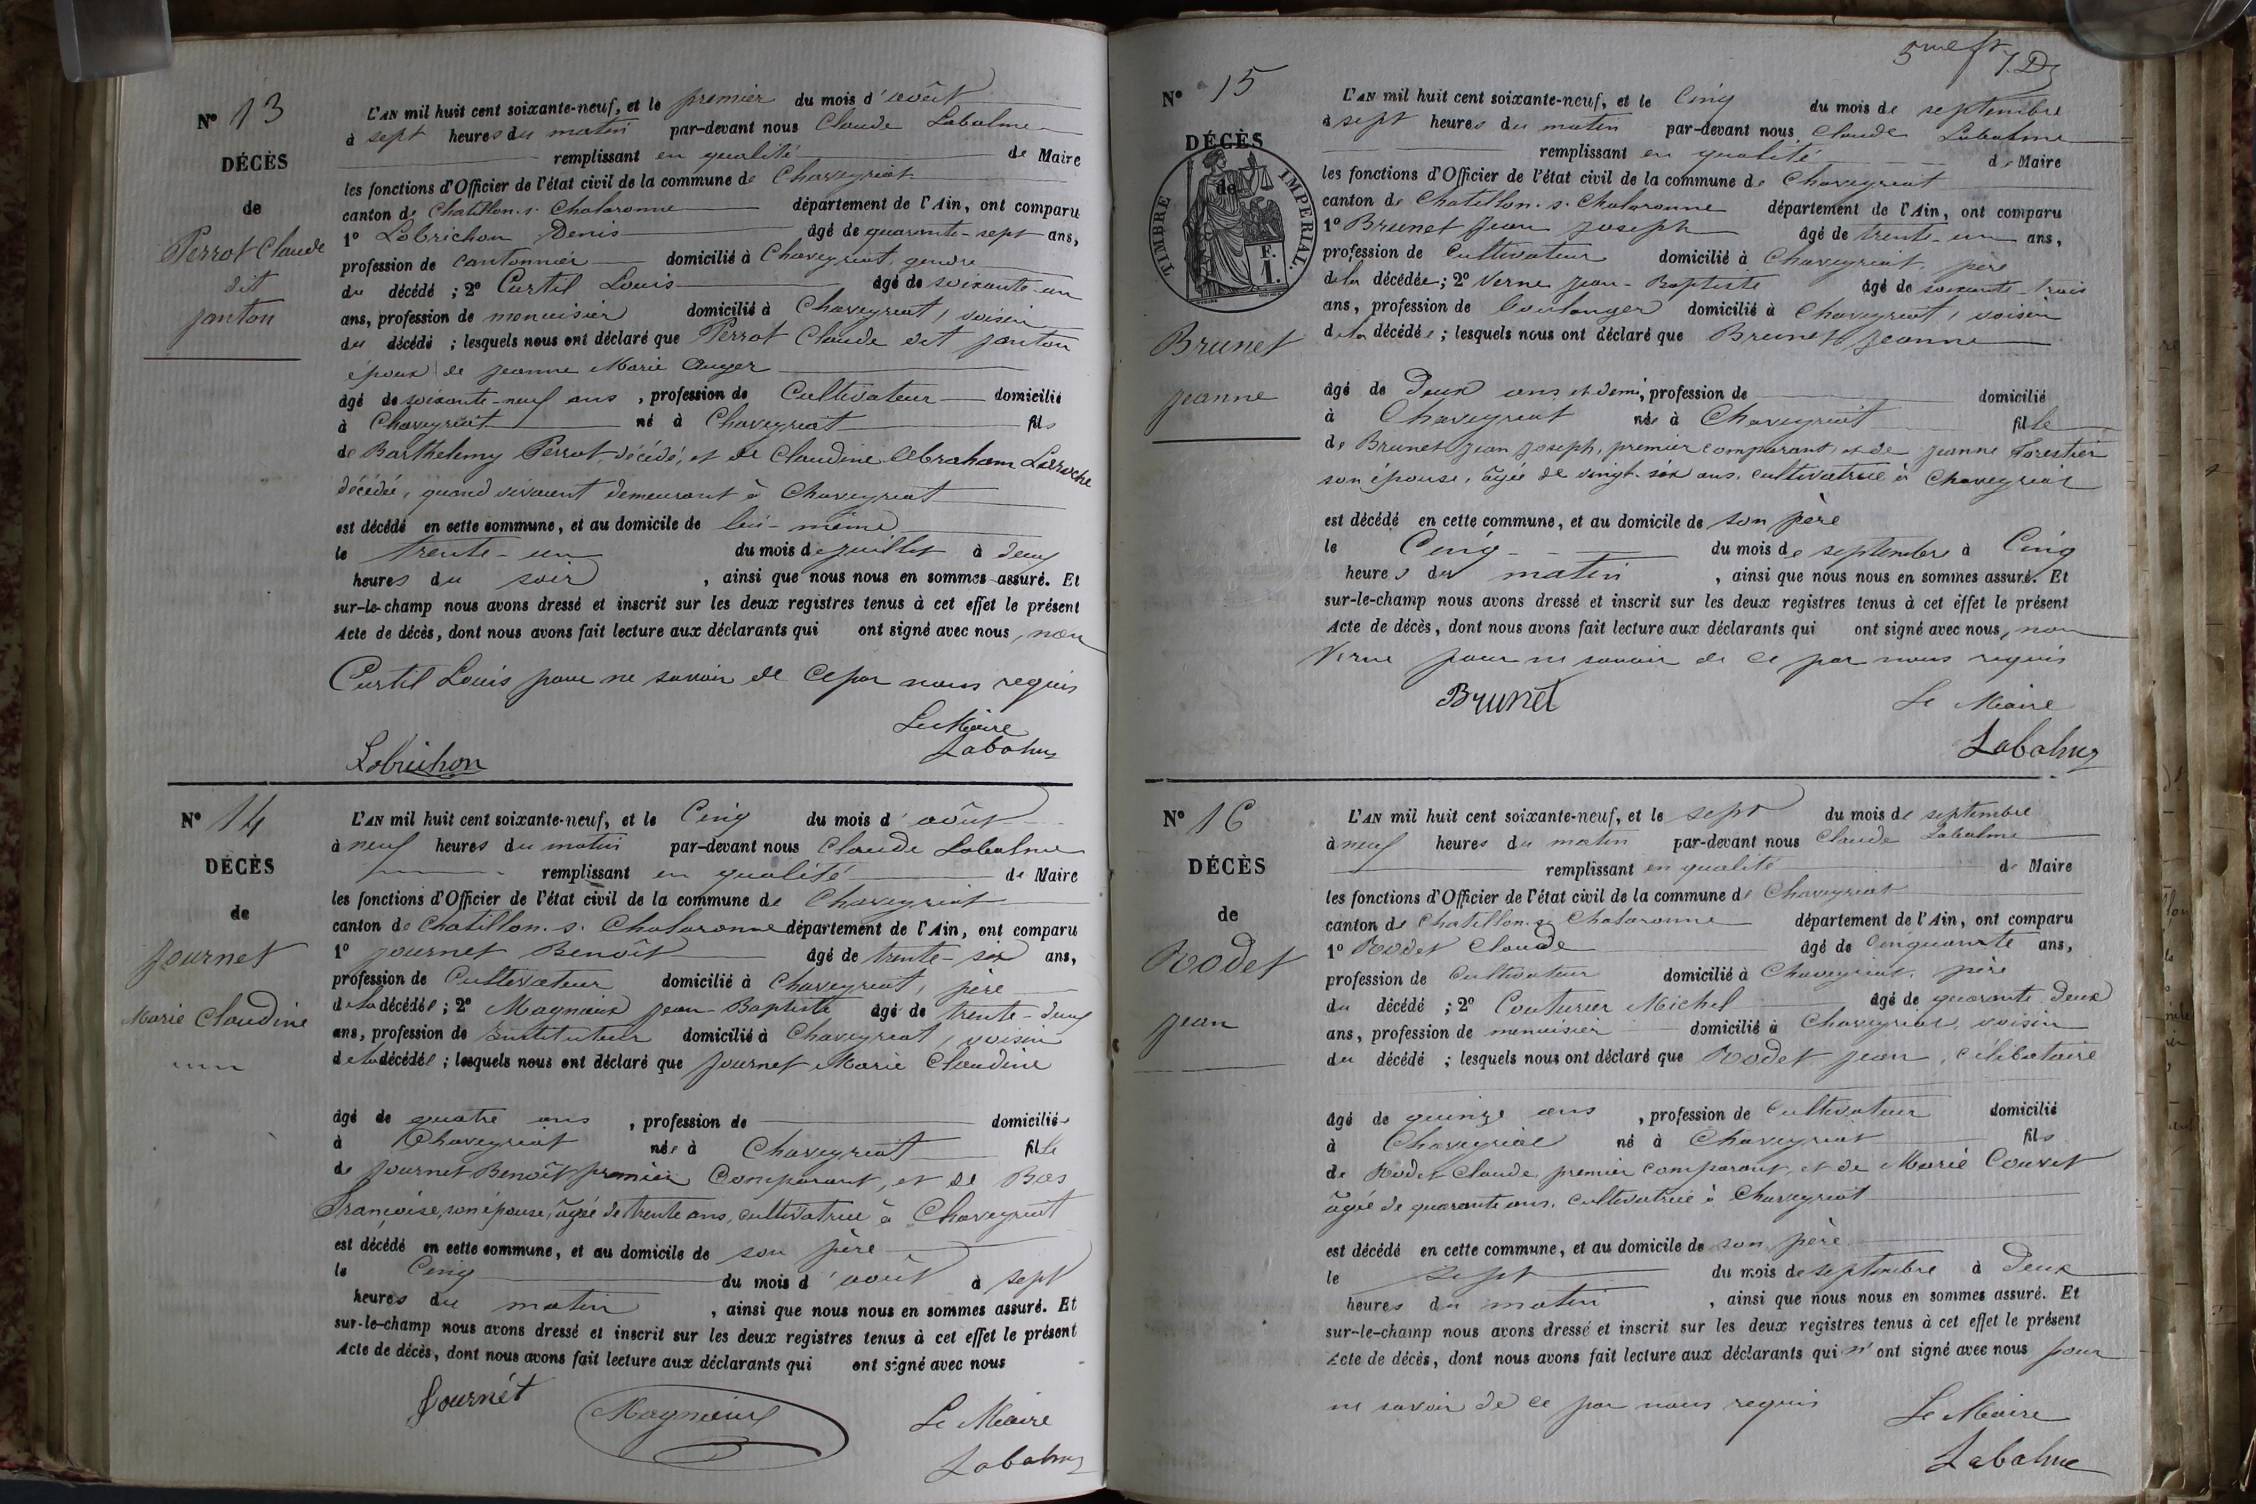 N° 13
DÉCÈS
de
Perrot Claude
dit
Janton
L'AN mil huit cent soixante-neuf, et le premier du mois d'août
à sept heures du matin par-devant nous Claude Labalme
remplissant en qualité de Maire
les fonctions d'Officier de l'état civil de la commune de Chaveyriat
canton de Chatillon-s-Chalaronne département de l'Ain, ont comparu
1° Lobrichon Denis âgé de quarante-sept ans,
profession de cantonnier domicilié à Chaveyriat, gendre
du décédé ; 2° Curtil Louis âgé de soixante-un
ans, profession de menuisier domicilié à Chaveyriat, voisin
du décédé ; lesquels nous ont déclaré que Perrot Claude dit Janton
époux de Jeanne Marie Auger
âgé de soixante-neuf ans, profession de Cultivateur domicilié
à Chaveyriat né à Chaveyriat fils
de Barthelemy Perrot, décédé, et de Claudine Abraham Larroche
décédée, quand vivaient demeurant à Chaveyriat
est décédé en cette commune, et au domicile de lui-même
le trente-un du mois de juillet à deux
heures du soir, ainsi que nous nous en sommes assuré. Et
sur-le-champ nous avons dressé et inscrit sur les deux registres tenus à cet effet le présent
Acte de décès, dont nous avons fait lecture aux déclarants qui ont signé avec nous, non
Curtil Louis pour ne savoir de ce par nous requis
Le Maire
Labalme
Lobrichon
N° 14
DÉCÈS
de
Journet
Marie Claudine
L'AN mil huit cent soixante-neuf, et le Cinq du mois d'août
à neuf heures du matin par-devant nous Claude Labalme
remplissant en qualité de Maire
les fonctions d'Officier de l'état civil de la commune de Chaveyriat
canton de Chatillon-s-Chalaronne département de l'Ain, ont comparu
1° Journet Benoît âgé de trente-six ans,
profession de Cultivateur domicilié à Chaveyriat, père
de la décédée ; 2° Magnieux Jean-Baptiste âgé de trente-deux
ans, profession de Instituteur domicilié à Chaveyriat, voisin
de la décédée ; lesquels nous ont déclaré que Journet Marie Claudine
âgé de quatre ans, profession de domiciliée
à Chaveyriat née à Chaveyriat fille
de Journet Benoît premier Comparant, et de Bas
Françoise, son épouse, âgée de trente ans, cultivatrice à Chaveyriat
est décédé en cette commune, et au domicile de son père
le Cinq du mois d'août à sept
heures du matin, ainsi que nous nous en sommes assuré. Et
sur-le-champ nous avons dressé et inscrit sur les deux registres tenus à cet effet le présent
Acte de décès, dont nous avons fait lecture aux déclarants qui ont signé avec nous
Journet
Magnieux
Le Maire
Labalme
N° 15
DÉCÈS
de
TIMBRE IMPERIAL.
F.
1.
Brunet
Jeanne
L'AN mil huit cent soixante-neuf, et le Cinq du mois de septembre
à sept heures du matin par-devant nous Claude Labalme
remplissant en qualité de Maire
les fonctions d'Officier de l'état civil de la commune de Chaveyriat
canton de Chatillon-s-Chalaronne département de l'Ain, ont comparu
1° Brunet Jean Joseph âgé de trente-un ans,
profession de Cultivateur domicilié à Chaveyriat, père
de la décédée ; 2° Verne Jean-Baptiste âgé de soixante-trois
ans, profession de boulanger domicilié à Chaveyriat, voisin
de la décédée ; lesquels nous ont déclaré que Brunet Jeanne
âgé de Deux ans et demi, profession de domicilié
à Chaveyriat née à Chaveyriat fille
de Brunet Jean Joseph, premier comparant et de Jeanne Forestier
son épouse, âgée de vingt-six ans, cultivatrice à Chaveyriat
est décédé en cette commune, et au domicile de son père
le Cinq du mois de septembre à Cinq
heures du matin, ainsi que nous nous en sommes assuré. Et
sur-le-champ nous avons dressé et inscrit sur les deux registres tenus à cet effet le présent
Acte de décès, dont nous avons fait lecture aux déclarants qui ont signé avec nous, non
Verne pour ne savoir de ce par nous requis
Brunet
Le Maire
Labalme
N° 16
DÉCÈS
de
Rodet
Jean
L'AN mil huit cent soixante-neuf, et le sept du mois de septembre
à neuf heures du matin par-devant nous Claude Labalme
remplissant en qualité de Maire
les fonctions d'Officier de l'état civil de la commune de Chaveyriat
canton de Chatillon-s-Chalaronne département de l'Ain, ont comparu
1° Rodet Claude âgé de Cinquante ans,
profession de Cultivateur domicilié à Chaveyriat, père
du décédé ; 2° Couturier Michel âgé de quarante-Deux
ans, profession de menuisier domicilié à Chaveyriat, voisin
du décédé ; lesquels nous ont déclaré que Rodet Jean, célibataire
âgé de quinze ans, profession de Cultivateur domicilié
à Chaveyriat né à Chaveyriat fils
de Rodet Claude premier comparant, et de Marie Couvet
âgée de quarante ans, cultivatrice à Chaveyriat
est décédé en cette commune, et au domicile de son père
le sept du mois de septembre à Deux
heures du matin, ainsi que nous nous en sommes assuré. Et
sur-le-champ nous avons dressé et inscrit sur les deux registres tenus à cet effet le présent
Acte de décès, dont nous avons fait lecture aux déclarants qui n'ont signé avec nous pour
ne savoir de ce par nous requis
Le Maire
Labalme